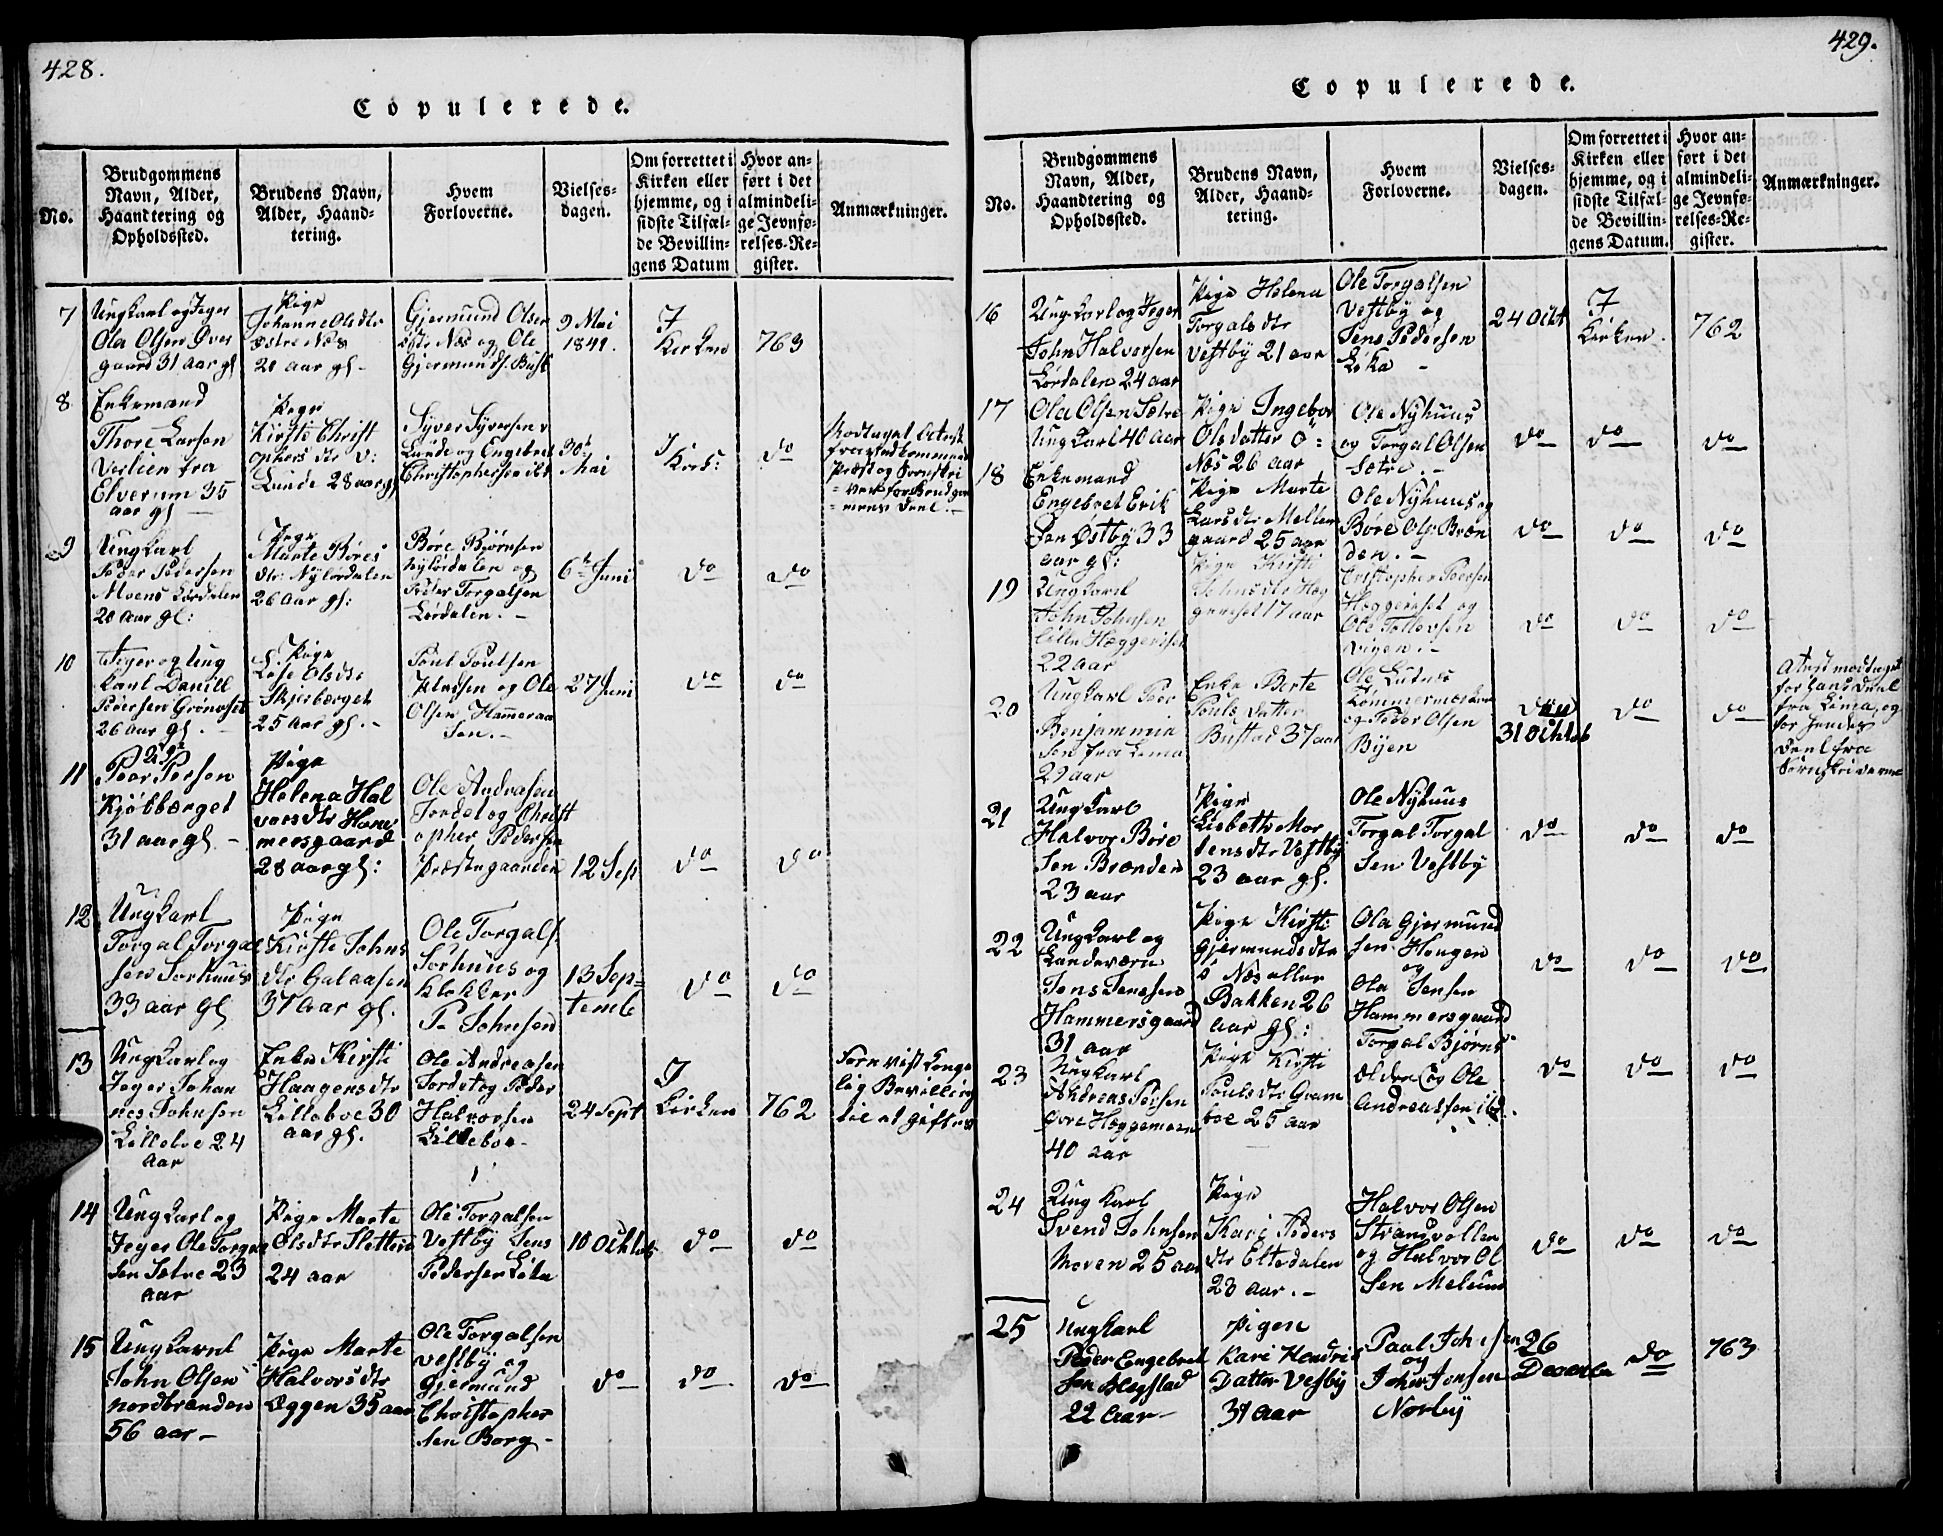 428.
Copulerede.
No.
Brudgommens
Navn, Alder,
Haandtering og
Opholdssted.
Brudens Navn,
Alder, Haand-
tering.
Hvem
Forloverne.
Vielses-
dagen.
Om forrettet i
Kirken eller
hjemme, og i
sidste Tilfæl-
de Bevillin-
gens Datum
Hvor an-
ført i det
almindeli-
ge Jevnfø-
relses-Re-
gister.
Anmærkninger.
7
Ungkarl og Jeger
Ola Olsen Øver
gaard 31 aar gl
Pige
Johanne Olsdtr
østre Næs
20 aar gl -
Gjermund Olsen
østr Næs og Ole
Gjermunds. Bust
9 Mai
1841.
I
Kirken
763
8
Enkemand
Thore Larsen
Verlien fra
Elverum 35
aar gl
Pige
Kirsti Christ
ophers dtr v:
Lunde 28 aar gl
Syver Syversen v
Lunde og Engebret
Christophersen ibd
30
Mai
I
Kirk:
do
Modtaget Attest
fra vedkommende
Præst og Sorenskri
= ver for Brudgom
= mens Deel.-
9
Ungkarl
Peder Pedersen
Moens Lørdalen
20 aar gl:
Pige
Marte Børes
dtr: Nylørdalen
26 aar gl:
Børe Bjørnsen
nylørdalen og
Peder Torgalsen
Lørdalen. -
6te Juni
do
do
10
Jeger og Ung
karl Danill
Pedersen Grønoset
26 aar gl. -
Pige
Lise Olsdtr
Skjerberget
25 aar gl. -
Poul Poulsen
Plassen og Ole
Olsen Hammeraa
sen. -
27 Juni
do
do
11
Peer Persen
Kjøkberget
31 aar gl. -
Pige
Helena Hal
vorsdtr Ham
mersgaard
28 aar gl:
Ole Andreasen
Jordet og Christ
opher Pedersen
Præstegaarden
12 Sep
do
do
12
Ungkarl
Torgal Torgal
sen Sorhuus
33 aar gl
Pige
Kirsti Johns
dtr Galaasen
37 aar gl.
Ole Torgals
Sorhuus og
Klokker
P. Johnsen
13 Sep=
temb
do
do
13
Ungkarl og
Jeger Johan
nes Johnsen
Lilleboe 24
aar
Enke Kirsti
Haagensdtr
Lilleboe 30
aar gl.
Ole Andreasen
Jordet og Peder
Halvorsen
Lilleboe
24 Sept
I
Kirken
762
Forevist Konge
lig Bevilling
til at giftes
14
Ungkarl og
Jeger Ole Torgal
sen Sætre 23
aar
Pige Marte
Olsdtr Sletten
24 aar
Ole Torgalsen
Vestby Jens
Pedersen Lika
10 Octob
do
do
15
Ungkarl
John Olsen
nordbrenden
56 aar -
Pige Marte
Halvorsdtr
Eggen 35 aar
Ole Torgalsen
Vestby og
Gjermund
Christopher
sen Borg -
do
do
do
429.
Copulerede.
No.
Brudgommens
Navn, Alder,
Haandtering og
Opholdssted.
Brudens Navn,
Alder, Haand-
tering.
Hvem
Forloverne.
Vielses-
dagen.
Om forrettet i
Kirken eller
hjemme, og i
sidste Tilfæl-
de Bevillin-
gens Datum.
Hvor an-
ført i det
almindeli-
ge Jevnfø-
relses-Re-
gister.
Anmærkninger.
16
Ungkarl og Jeger
John Halvorsen
Lørdalen 24 aar
Pige Helena
Torgals dtr
Vestby 21 aar
Ole Torgalsen
Vestby og
Jens Pedersen
Lika -
24 Octt
I
Kirken.
762
17
Ola Olsen Sætre
Ungkarl 40 aar
Pige Ingebor
Olsdatter ø:
Næs 26 aar
Ole Nyhuus
og Torgal Olsen
Sætre. -
do
do
do
18
Enkemand
Engebret Erik
sen Østby 33
aar gl:
Pige Marte
Larsdtr Mellem
gaard 25 aar
Ole Nyhuus og
Børe Ols: Bræn
den. -
do
do
do
19
Ungkarl
John Johnsen
lille Heggeriset
22 aar
Pige Kirsti
Johnsdtr Heg
geriset 17 aar
Cristopher Peersen
Heggeriset og
Ole Tollevsen
vigen. -
do
do
do
20
Ungkarl Peer
Benjamin
sen fra Lima
29 aar
Enke Berte
Pouls datter
Bustad 37 aar
Ole
Tømmermoen
og Peder Olsen
Byen
31 Octob
do
do
Attest modtaget
for hans Deel
fra Lima, og
for hendes
Deel fra
Sorenskriveren
21
Ungkarl
Halvor Børe
sen Brænden
23 aar
Pige
Lisbeth Mor
tensdtr Vestby
23 aar gl.
Ole Nyhuus
Torgal Torgal
sen Vestby
do
do
do
22
Ungkarl og
Landeværn
Jens Jensen
Hammersgaard
31 aar
Pige Kirsti
Gjermundsdtr
ø Næs eller
Bakken 26
aar gl:
Ola Gjermund
sen Haugen
og
Ola Jensen
Hammersgaard
do
do
do
23
Ungkarl
Andreas Peersen
øvre Heggemoen
40 aar
Pige Kirsti
Pouls dtr Gram
boe 25 aar
Torgal Bjørns
Eldre og Ole
Andreassen ibd.
do
do
do
24
Ung karl
Svend Johnsen
Moren 25 aar
Pige
Kari Peders
dtr Eltedalen
23 aar. -
Halvor Olsen
Strandvollen
og Halvor Ol
sen Melund
do
do
do
25
Ungkarl
Peder Engebret
sen Blegstad
22 Aar -
Pigen
Kari Hendrik
Datter Vesby
31 Aar
Paal Johnsen
og
Joher Jonsen
Norby
26
Decembr
do
763